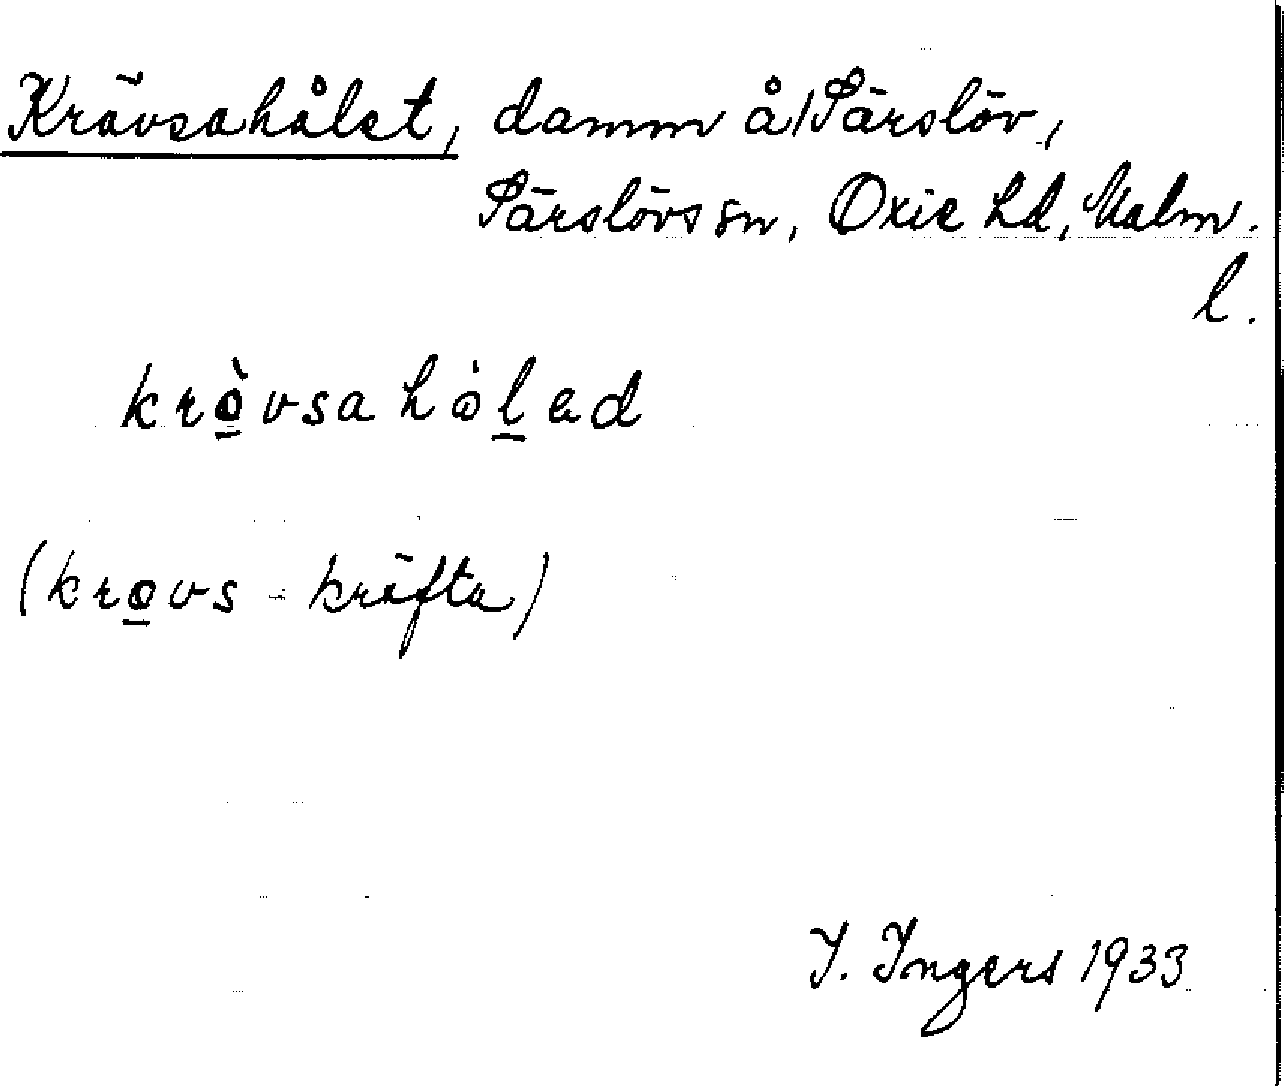 Krävsahålet, damm å Särslöv,
Särslövs sn, Oxie hd, Malm.
l.
krò̱vsahòḻad
(kro̱vs - kräfta)
I. Ingers 1933